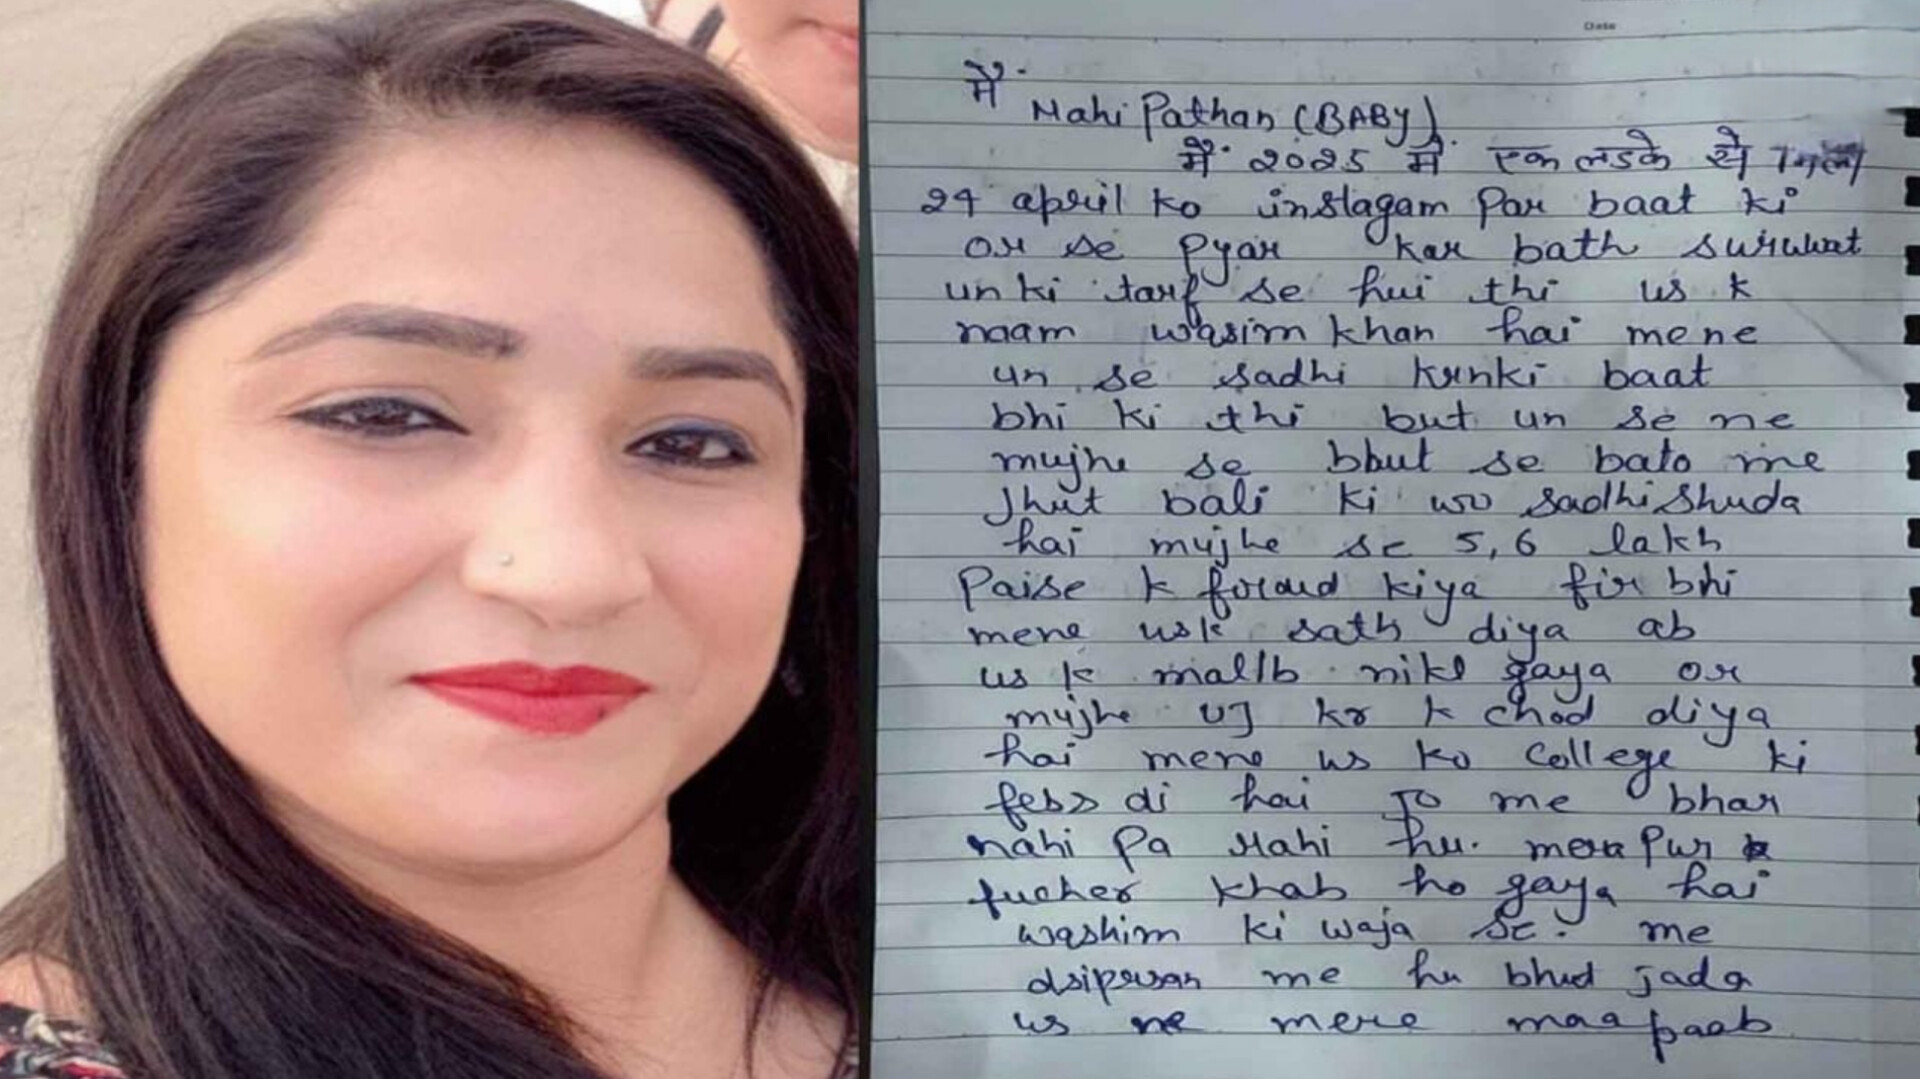 Date
मैं
Mahi Pathan (BABY)
मैं 2025 में एक लडके से
24 april ko instagam par baat ki
or se pyar kar bath suruwat
un ki tarf se hui thi us k
naam wasim khan hai mene
un se sadhi krnki baat
bhi ki thi but un se ne
mujhe se bhut se bato me
Jhut bali ki wo sadhi shuda
hai mujhe se 5,6 lakh
Paise k foraud kiya fir bhi
mene usk sath diya ab
us k matlb nikl gaya or
mujhe UJ kr k chod diya
hai mene us ko college ki
fess di hai jo me bhar
nahi pa rahi hu. mera pur
fucher khab ho gaya hai
washim ki waja se. me
dsiprsan me hu bhut jada
us ne mere maa paab